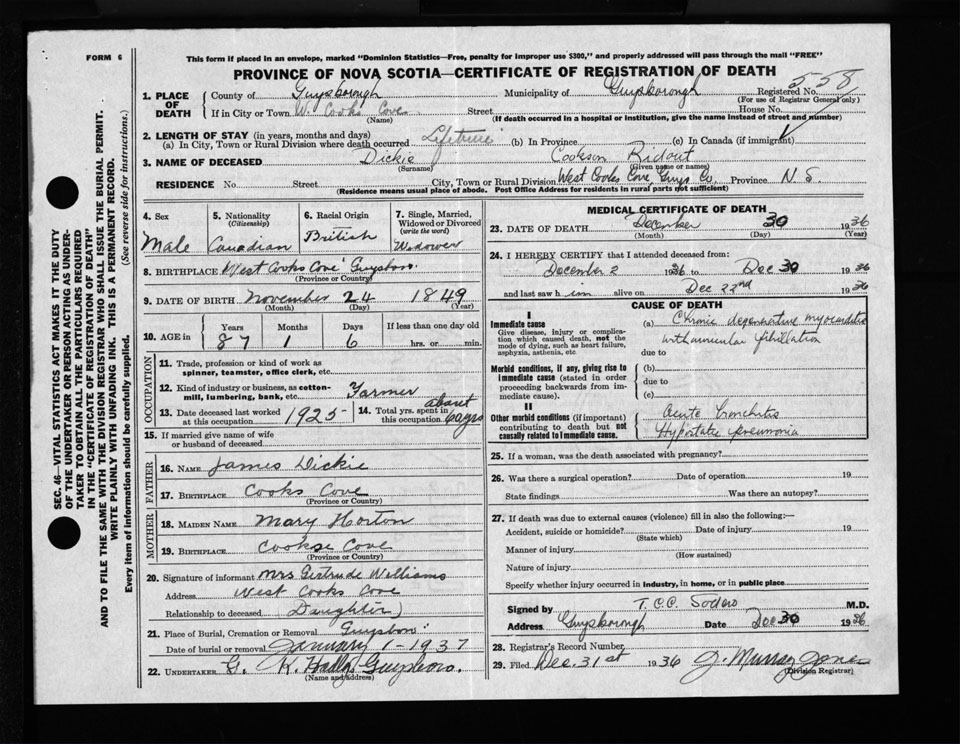 FORM 6
This form if placed in an envelope, marked "Dominion Statistics—Free, penalty for improper use $300," and properly addressed will pass through the mail "FREE"
PROVINCE OF NOVA SCOTIA—CERTIFICATE OF REGISTRATION OF DEATH
Registered No. 558
(For use of Registrar General only)
1. PLACE OF DEATH
County of Guysborough Municipality of Guysborough
If in City or Town W. Cooks Cove Street House No.
(Name) (If death occurred in a hospital or institution, give the name instead of street and number)
2. LENGTH OF STAY (in years, months and days)
(a) In City, Town or Rural Division where death occurred Lifetime (b) In Province (c) In Canada (if immigrant)
3. NAME OF DECEASED Dickie Cookson Ridout
(Surname) (Given name or names)
RESIDENCE No. Street City, Town or Rural Division West Cooks Cove, Guys Co, Province N S.
(Residence means usual place of abode. Post Office Address for residents in rural parts not sufficient)
SEC. 46—VITAL STATISTICS ACT MAKES IT THE DUTY
OF THE UNDERTAKER OR PERSON ACTING AS UNDER-
TAKER TO OBTAIN ALL THE PARTICULARS REQUIRED
IN THE "CERTIFICATE OF REGISTRATION OF DEATH"
AND TO FILE THE SAME WITH THE DIVISION REGISTRAR WHO SHALL ISSUE THE BURIAL PERMIT.
WRITE PLAINLY WITH UNFADING INK. THIS IS A PERMANENT RECORD.
Every item of information should be carefully supplied. (See reverse side for instructions.)
4. Sex
Male
5. Nationality
(Citizenship)
Canadian
6. Racial Origin
British
7. Single, Married,
Widowed or Divorced
(write the word)
Widower
8. BIRTHPLACE West Cooks Cove Guysboro.
(Province or Country)
9. DATE OF BIRTH November 24 1849
(Month) (Day) (Year)
10. AGE in
Years 87
Months 1
Days 6
If less than one day old
hrs. or min.
OCCUPATION
11. Trade, profession or kind of work as
spinner, teamster, office clerk, etc.
12. Kind of industry or business, as cotton-
mill, lumbering, bank, etc. Farmer
13. Date deceased last worked
at this occupation 1925
14. Total yrs. spent in
this occupation about 60 yrs
15. If married give name of wife
or husband of deceased
FATHER
16. NAME James Dickie
17. BIRTHPLACE Cooks Cove
(Province or Country)
MOTHER
18. MAIDEN NAME Mary Horton
19. BIRTHPLACE Cookse Cove
(Province or Country)
20. Signature of informant Mrs Gertrude Williams
Address West Cooks Cove
Relationship to deceased Daughter
21. Place of Burial, Cremation or Removal Guysboro
Date of burial or removal January 1 - 1937
22. UNDERTAKER G. K. Guysboro.
(Name and address)
MEDICAL CERTIFICATE OF DEATH
23. DATE OF DEATH December 30 1936
(Month) (Day) (Year)
24. I HEREBY CERTIFY that I attended deceased from:
December 2 1936 to Dec 30 1936
and last saw h im alive on Dec 23rd 1936
CAUSE OF DEATH
I
Immediate cause
Give disease, injury or complica-
tion which caused death, not the
mode of dying, such as heart failure,
asphyxia, asthenia, etc
(a) Chronic degenerative myocarditis
with auricular fibrillation
due to
Morbid conditions, if any, giving rise to
immediate cause (stated in order
proceeding backwards from im-
mediate cause).
(b)
due to
(c)
II
Other morbid conditions (if important)
contributing to death but not
causally related to immediate cause.
Acute bronchitis
Hypostatic pneumonia
25. If a woman, was the death associated with pregnancy?
26. Was there a surgical operation? Date of operation 19
State findings Was there an autopsy?
27. If death was due to external causes (violence) fill in also the following:—
Accident, suicide or homicide? Date of injury 19
(State which)
Manner of injury
(How sustained)
Nature of injury
Specify whether injury occurred in industry, in home, or in public place
Signed by T. C. C. Sodero M.D.
Address Guysborough Date Dec 30 1936
28. Registrar's Record Number
29. Filed Dec. 31st 1936 J. Murray Jones
(Division Registrar)